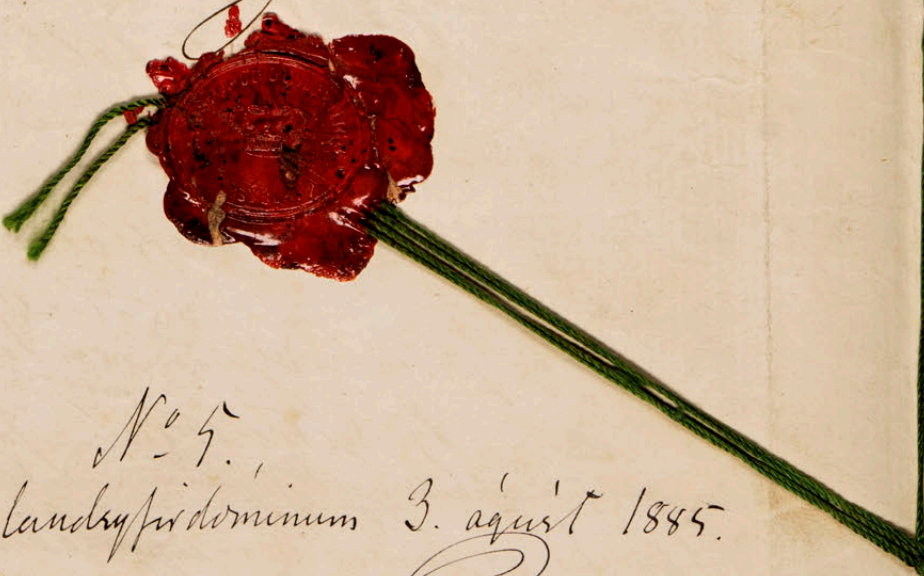 No 5.
landsyfirdóminum 3. ágúst 1885.